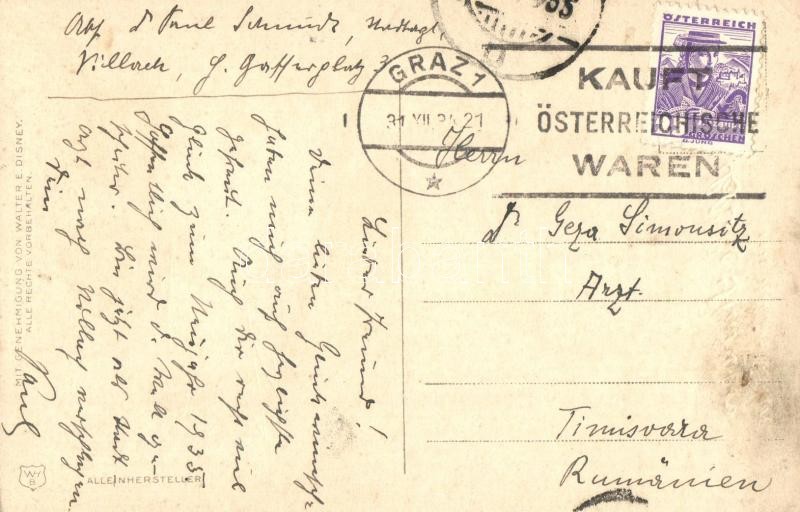 Abs. Dr Paul Schmidt, Stadtarzt
Villach, H. Gasserplatz 3
GRAZ 1
31.XII.34.21
ÖSTERREICH
GROSCHEN
KAUFT
ÖSTERREICHISCHE
WAREN
Herrn
Dr Geza Simonsitz
Arzt
Timisoara
Rumänien
Lieber Freund!
Deine lieben Glückwünsche
haben mich aufs herzlichste
gefreut. Auch Dir recht viel
Glück zum Neujahr 1935
Hoffentlich wird d. Welt ge-
scheiter. Bin jetzt als Stadt
arzt nach Villach verschlagen.
Dein
Paul
MIT GENEHMIGUNG VON WALTER E. DISNEY.
ALLE RECHTE VORBEHALTEN.
ALLEINHERSTELLER